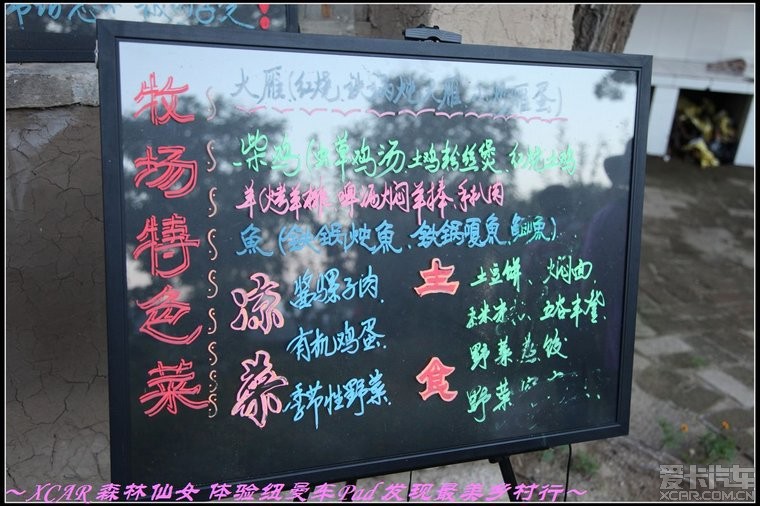 牧场特色菜
大雁(红烧、铁锅炖大雁、雁蛋)
柴鸡(草鸡汤、土鸡粉丝煲、红烧土鸡
羊(烤羊排、啤酒焖羊棒、手扒肉
魚(鉄锅炖魚、鉄锅嘎魚、魚)
凉菜
酱骡子肉.
有机鸡蛋.
季节性野菜.
主食
土豆饼、焖面
五谷丰登
野菜蒸饺
野菜
～XCAR 森林仙女 体验纽曼车Pad 发现最美乡村行～
爱卡汽车
XCAR.COM.CN